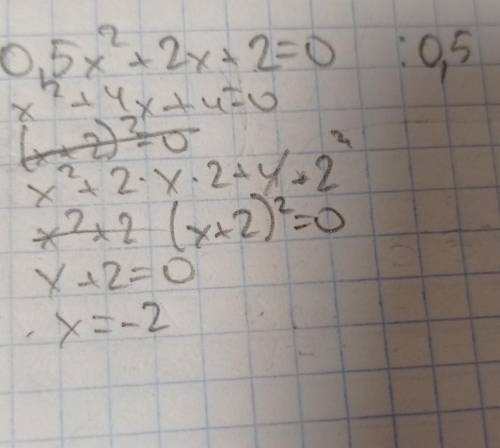 0,5x² + 2x + 2 = 0 : 0,5
x² + 4x + 4 = 0
(x+2)² = 0
x² + 2·x·2 + 4 + 2²
x² + 2 (x+2)² = 0
x + 2 = 0
x = -2